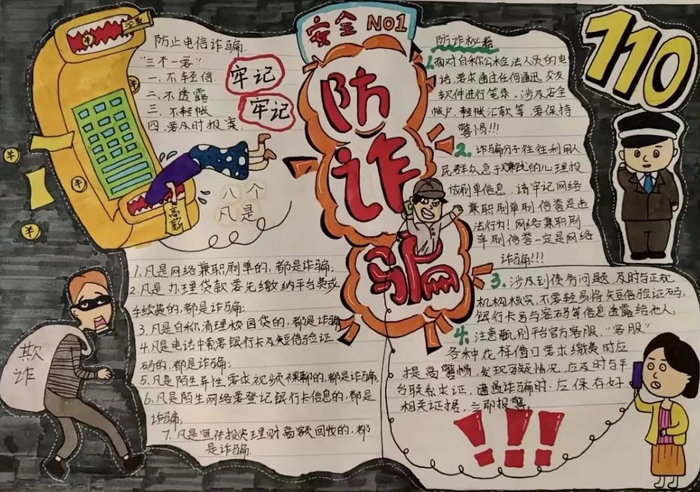 安全 NO1
防诈骗
110
防止电信诈骗
"三不一要"
一、不轻信
二、不透露
三、不转帐
四、要及时报案
牢记
牢记
八个
凡是
1.凡是网络兼职刷单的,都是诈骗;
2.凡是办理贷款要先缴纳平台费或
手续费的,都是诈骗;
3.凡是自称清理校园贷的,都是诈骗
4.凡是电话中索要银行卡及短信验证
码的,都是诈骗;
5.凡是陌生异性要求视频裸聊的,都是诈骗,
6.凡是陌生网络要登记银行卡信息的,都是
诈骗,
7.凡是宣传投资理财高额回收的,都
是诈骗
欺诈
防诈秘籍
1.面对自称公检法人员的电
话,要求通过任何通讯、交友
软件进行笔录,涉及安全
帐户、转帐汇款等,要保持
警惕!!!
2.诈骗分子往往利用人
民群众急于
的心理投
放刷单信息,请牢记网络
兼职刷单刷信誉是违
法行为!网络兼职刷
单刷信誉一定是网络
诈骗!!!
3.涉及到债务问题,及时与正规
机构核实,不要轻易将短信验证码,
银行卡号与密码等信息透露给他人,
4.注意甄别平台官方客服,"客服"
各种花样借口要求缴费时应
提高警惕,发现可疑情况,应及时与平
台联系求证,遭遇诈骗时,应保存好
相关证据,立即报警。
!!!